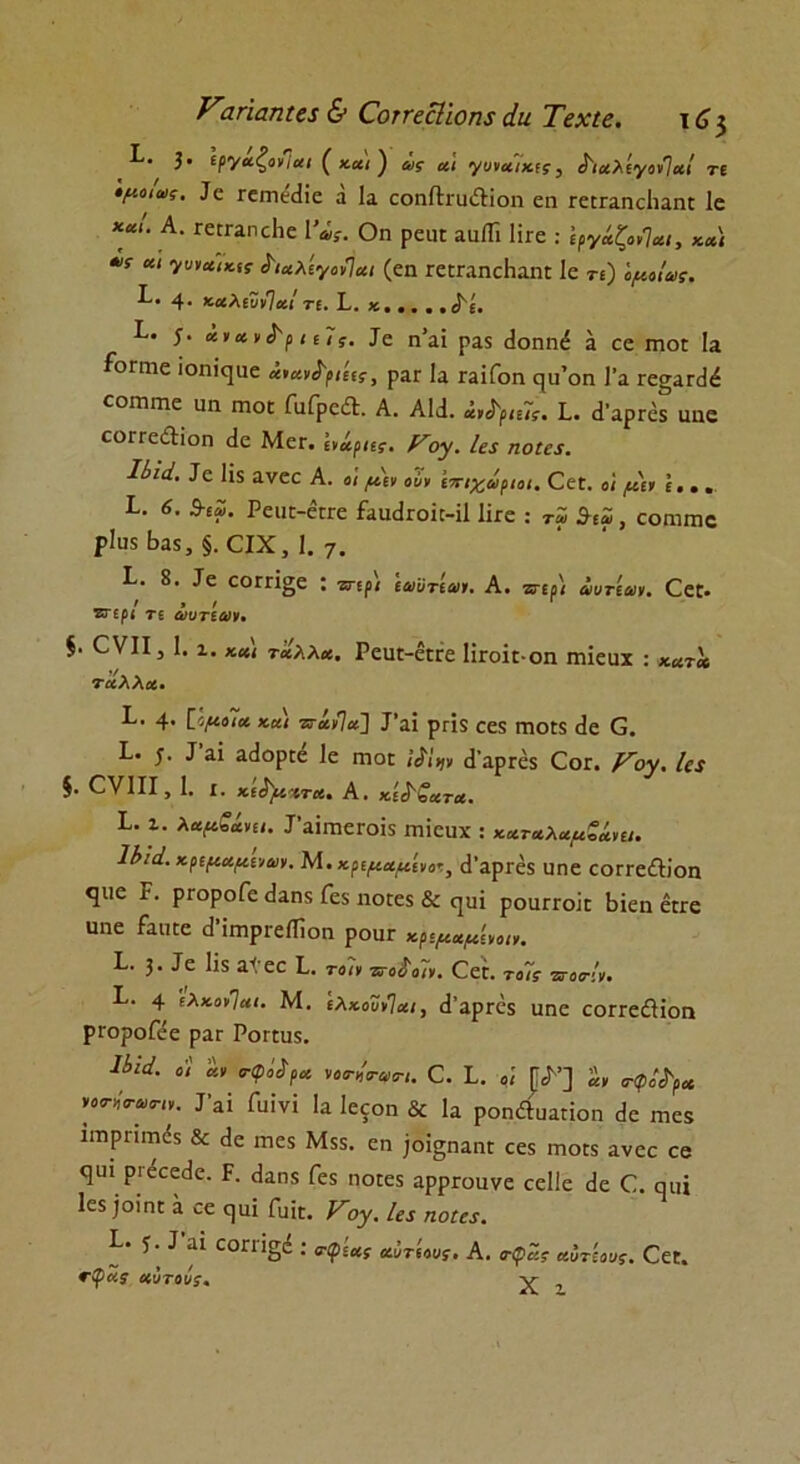 Variantes & Corrections du Texte. 163
L. 3. ἐργάζονται ( καὶ ) ὡς αἱ γυναῖκες, διαλέγονταί τε
ὁμοίως. Je remédie à la conſtruction en retranchant le
καί. A. retranche l'ὡς. On peut auſſi lire : ἐργάζονται, καὶ
ὡς αἱ γυναῖκες διαλέγονται (en retranchant le τε) ὁμοίως.
L. 4. καλεῦνταί τε. L. κ......δέ.
L. 5. ἀνανδριεῖς. Je n'ai pas donné à ce mot la
forme ionique ἀνανδριέες, par la raiſon qu'on l'a regardé
comme un mot ſuſpect. A. Ald. ἀνδριεῖς. L. d'après une
correction de Mer. ἐνάριες. Voy. les notes.
Ibid. Je lis avec A. οἱ μὲν οὖν ἐπιχώριοι. Cet. οἱ μὲν ἐ...
L. 6. θεῷ. Peut-être faudroit-il lire : τῷ θεῷ, comme
plus bas, §. CIX, l. 7.
L. 8. Je corrige : περὶ ἑωυτέων. A. περὶ ἀυτέων. Cet.
περί τε ἀυτέων.
§. CVII, l. 2. καὶ τἄλλα. Peut-être liroit-on mieux : κατὰ
τἄλλα.
L. 4. [ὁμοῖα καὶ πάντα] J'ai pris ces mots de G.
L. 5. J'ai adopté le mot ἰδίην d'après Cor. Voy. les
§. CVIII, l. 1. κέδματα. A. κέδϐατα.
L. 2. λαμϐάνει. J'aimerois mieux : καταλαμϐάνει.
Ibid. κρεμαμένων. M. κρεμαμένον, d'après une correction
que F. propoſe dans ſes notes & qui pourroit bien être
une faute d'impreſſion pour κρεμαμένοιν.
L. 3. Je lis avec L. τοῖν ποδοῖν. Cet. τοῖς ποσίν.
L. 4 ἕλκονται. M. ἑλκοῦνται, d'après une correction
propoſée par Portus.
Ibid. οἳ ἂν σφόδρα νοσήσωσι. C. L. οἳ [δ'] ἂν σφόδρα
νοσήσωσιν. J'ai ſuivi la leçon & la ponctuation de mes
imprimés & de mes Mss. en joignant ces mots avec ce
qui précede. F. dans ſes notes approuve celle de C. qui
les joint à ce qui ſuit. Voy. les notes.
L. 5. J'ai corrigé : σφέας αὐτέους. A. σφᾶς αὐτέους. Cet.
σφᾶς αὐτούς.
X 2